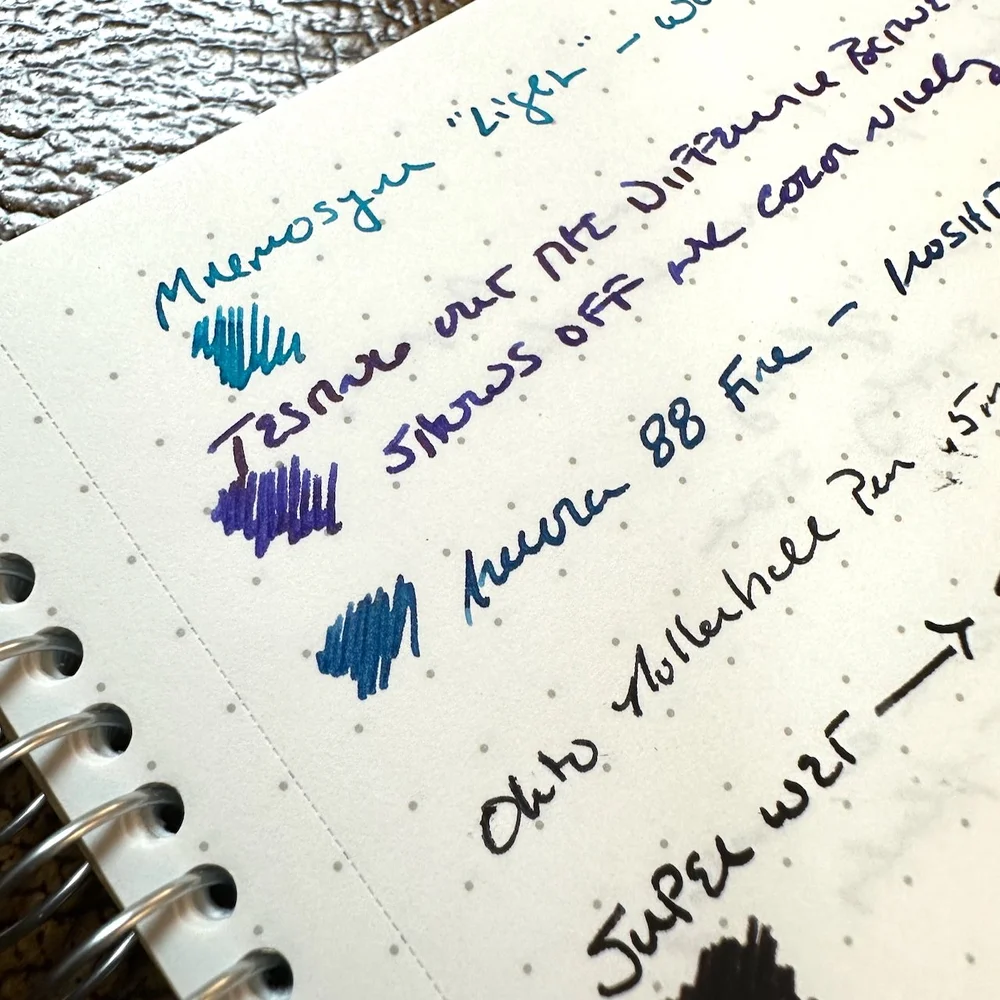 Mnemosyne "Light" –
Testing out the Difference Between
Shows off the color nicely
Aurora 88 Fine –
Ohto Rollerball Pen .5m
Super wet →